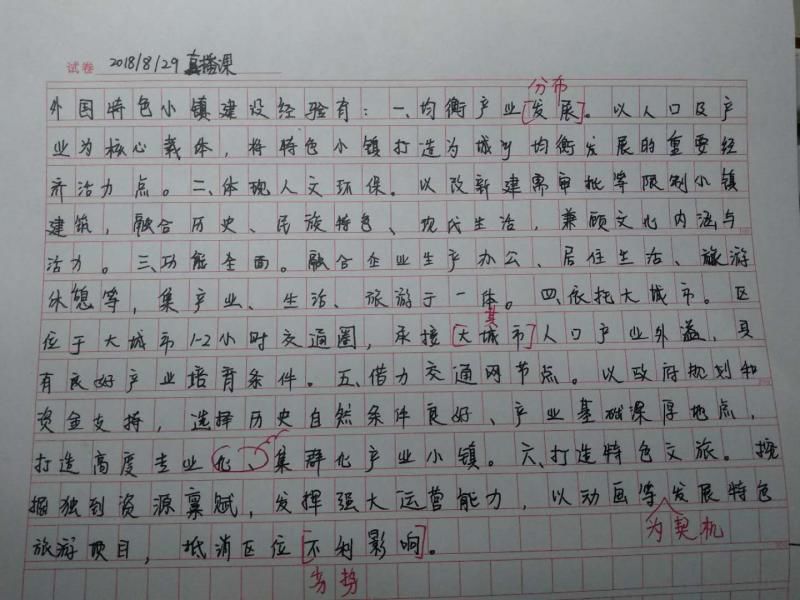 试卷 2018/8/29 直播课
分布
外国特色小镇建设经验有：一、均衡产业[发展]。以人口及产
业为核心载体，将特色小镇打造为城乡均衡发展的重要经
济活力点。二、体现人文环保。以改新建需审批等限制小镇
建筑，融合历史、民族特色、现代生活，兼顾文化内涵与
活力。三、功能全面。融合企业生产办公、居住生活、旅游
休憩等，集产业、生活、旅游于一体。四、依托大城市。区
其
位于大城市1-2小时交通圈，承接[大城市]人口产业外溢，具
有良好产业培育条件。五、借力交通网节点。以政府规划和
资金支持，选择历史自然条件良好、产业基础深厚地点，
打造高度专业化、集群化产业小镇。六、打造特色文旅。挖
掘独到资源禀赋，发挥强大运营能力，以动画等发展特色
为契机
旅游项目，抵消区位[不利影响]。
劣势